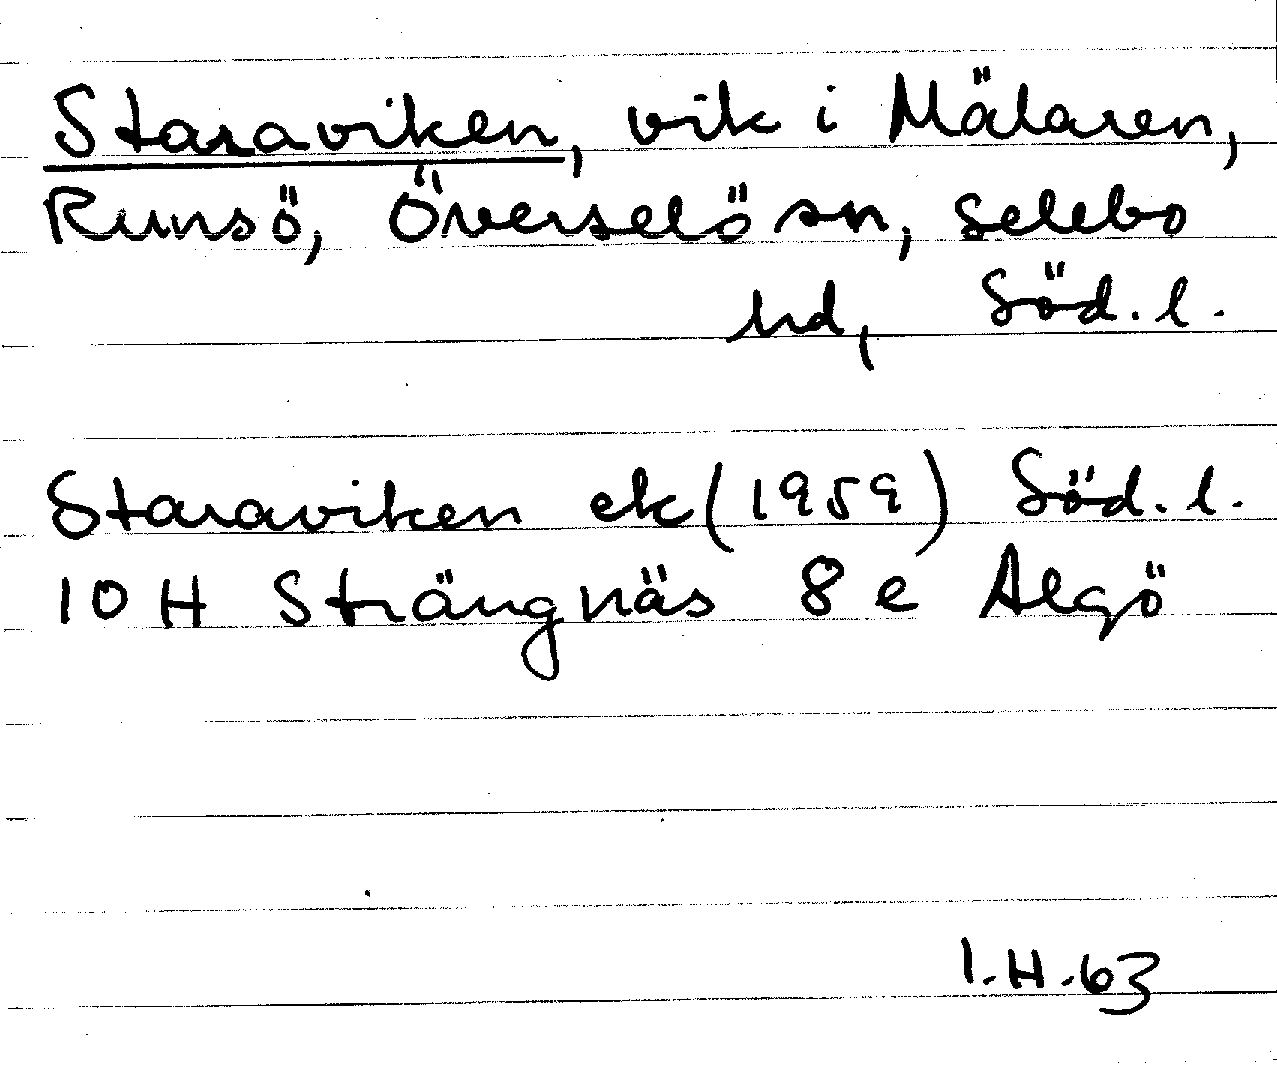 Staraviken, vik i Mälaren,
Runsö, Överselö sn, Selebo
hd, Söd. l.
Staraviken ek (1959) Söd. l.
10 H Strängnäs 8 e Algö
I.H.63